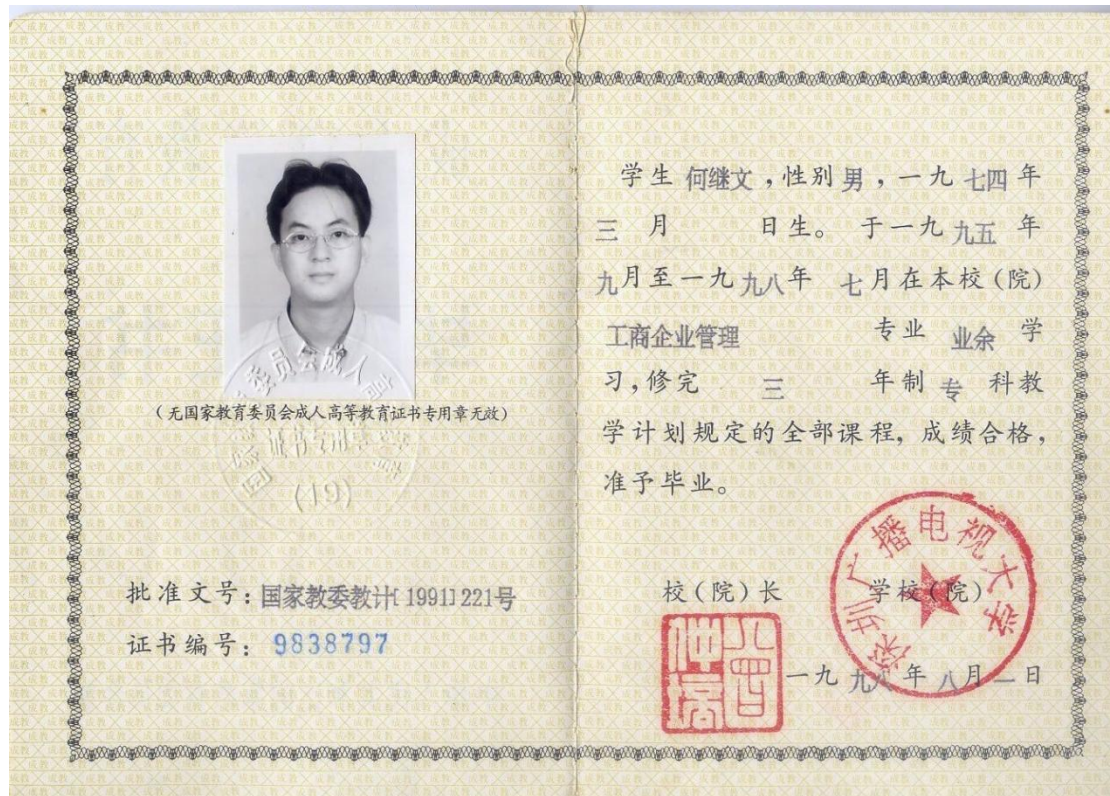 (无国家教育委员会成人高等教育证书专用章无效)
证书专用章
(19)
批准文号:国家教委教计[1991]221号
证书编号:9838797
学生 何继文 ,性别 男 ,一九 七四 年
三 月 日生。 于一九 九五 年
九月至一九 九八年 七月在本校(院)
工商企业管理 专业 业余 学
习,修完 三 年制 专 科教
学计划规定的全部课程,成绩合格,
准予毕业。
校(院)长 学校(院)
深圳广播电视大学
一九 九八 年 八月 一日